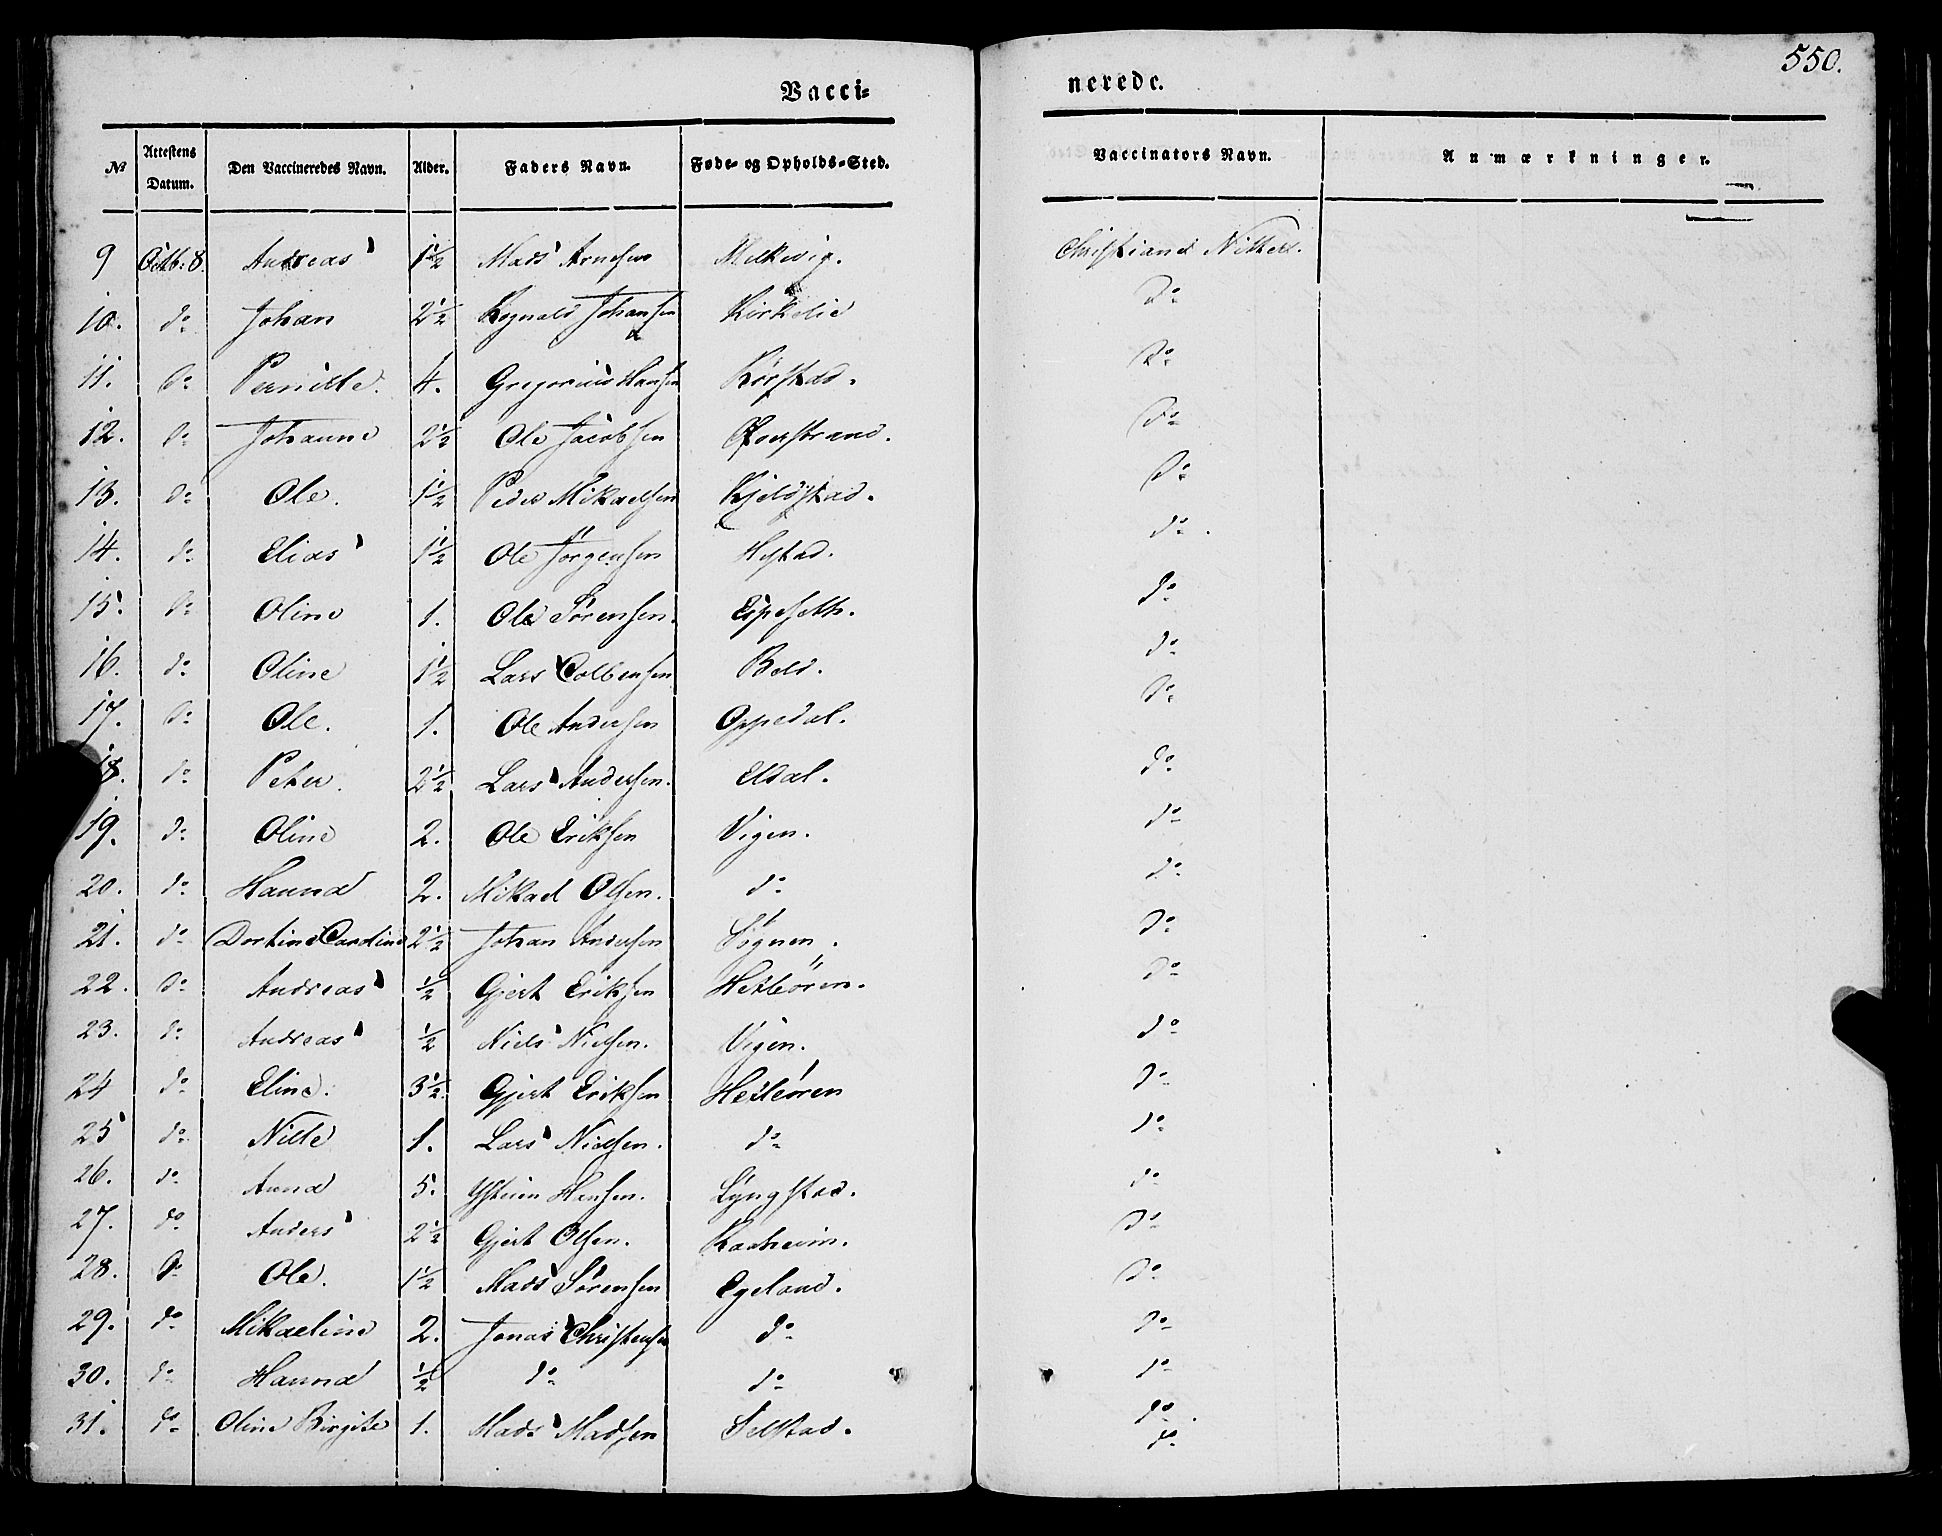 550.
Vacci- nerede.
№ Attestens Datum. Den Vaccineredes Navn. Alder. Faders Navn. Føde- og Opholds-Sted. Vaccinators Navn. Anmærkninger.
9 Octb. 8. Andreas 1½ Mads Arnesen Melkevig. Christiane Nitter.
10. do Johan 2½ Rognald Johansen Kirkelie do
11. do Pernille. 4. Gregorius Hansen Rörstad. do
12. do Johanne 2½ Ole Jacobsen do
13. do Ole. 1½ Peder Mikaelsen Kjeldstad. do
14. do Elias 1½ Ole Jörgensen Hestad. do
15. do Oline 1. Ole Sörensen. Espeseth. do
16. do Oline 1½ Lars Colbensen Beld. do
17. do Ole. 1. Ole Andersen Oppedal. do
18. do Peter. 2½ Lars Andersen. Eldal. do
19. do Oline 2. Ole Eriksen Vigen. do
20. do Hanna 2. Mikael Olsen. do do
21. do Dortine Caroline 2½ Johan Andersen Sögnen. do
22. do Andreas ½ Gjert Eriksen Hetleören. do
23. do Andreas ½ Niels Nielsen. Vigen. do
24 do Eline. 3½ Gjert Eriksen Hetleören do
25 do Nille 1. Lars Nielsen. do do
26. do Anna 5. Ystein Hansen. Lyngstad. do
27. do Anders 2½ Gjert Olsen. Kadheim. do
28. do Ole. 1½ Mads Sörensen Egeland. do
29. do Mikaeline 2. Jonas Christensen do do
30. do Hanna ½ do do do
31. do Oline Birgite 1. Mads Madsen Selstad. do
do